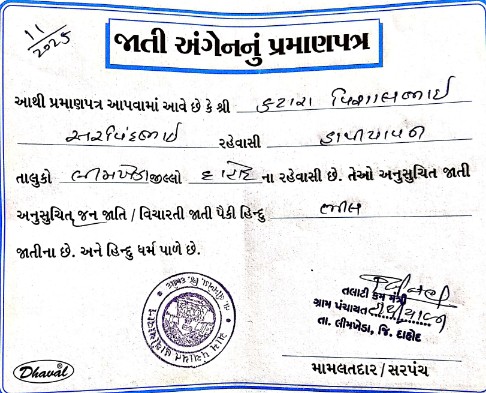 11/2025
જાતી અંગેનનું પ્રમાણપત્ર
આથી પ્રમાણપત્ર આપવામાં આવે છે કે શ્રી કટારા વિશાલભાઈ
અરવિંદભાઈ રહેવાસી
તાલુકો લીમખેડા જીલ્લો દાહોદ ના રહેવાસી છે. તેઓ અનુસુચિત જાતી
અનુસુચિત્ જન જાતિ / વિચારતી જાતી પૈકી હિન્દુ ભીલ
જાતીના છે. અને હિન્દુ ધર્મ પાળે છે.
તલાટી કમ મંત્રી
ગ્રામ પંચાયત
તા. લીમખેડા, જિ. દાહોદ
Dhaval
મામલતદાર / સરપંચ